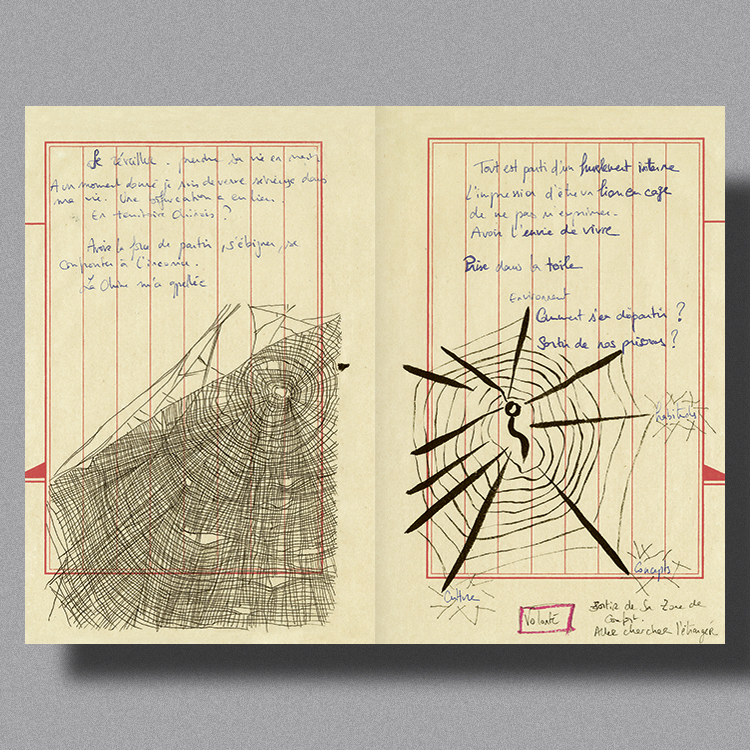 Se réveiller. prendre sa vie en main
A un moment donné je suis devenue sérieuse dans
ma vie. Une suffocation a eu lieu.
En territoire Chinois ?
Avoir la force de partir, s'éloigner, se
confronter à l'inconnu.
La Chine m'a appelée
Tout est parti d'un hurlement interne
L'impression d'être un lion en cage
de ne pas m'exprimer.
Avoir l'envie de vivre
Prise dans la toile
Environnement
Comment s'en départir ?
Sortir de nos prisons ?
habitudes
Concepts
Culture
Volonté
Sortir de sa zone de
Confort.
Aller chercher l'étranger